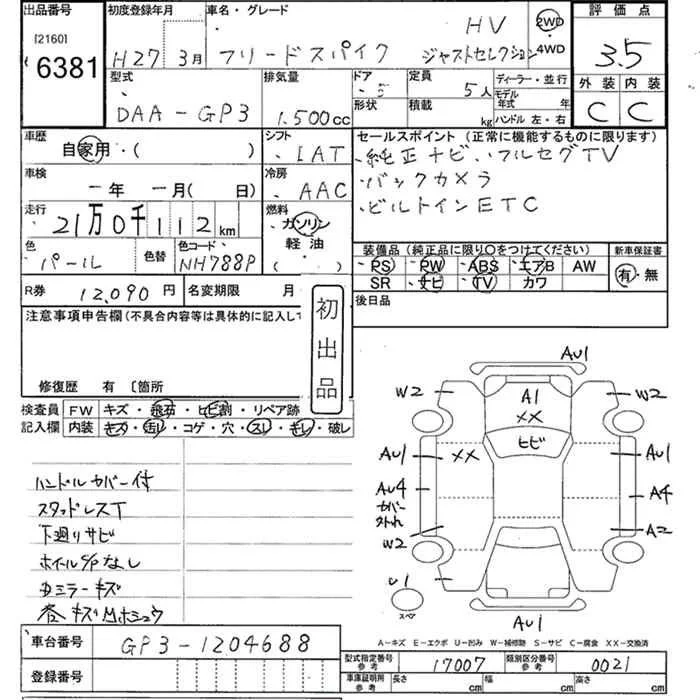 出品番号
[2160]
6381
初度登録年月
H27 3月
車名・グレード
HV
フリードスパイク ジャストセレクション
2WD
・4WD
評価点
3.5
外装 内装
C C
型式
DAA-GP3
排気量
1.500cc
ドア
5
形状
定員
5人
積載
kg
ディーラー・並行
モデル年式 年
ハンドル 左・右
車歴
自家用・( )
シフト
IAT
車検
一年 一月( 日)
冷房
AAC
走行
21万0千112km
燃料
ガソリン
軽油
( )
色
パール
色替
色コード
NH788P
セールスポイント (正常に機能するものに限ります)
純正ナビ、フルセグTV
バックカメラ
ビルトインETC
装備品 (純正品に限り○をつけてください)
PS PW ABS エアB AW
SR ナビ TV カワ
新車保証書
有・無
R券 12,090円
名変期限 月
後日品
注意事項申告欄(不具合内容等は具体的に記入して
初出品
修復歴 有 〔箇所
検査員 FW キズ・飛石・ヒビ割・リペア跡
記入欄 内装 キズ・汚レ・コゲ・穴・スレ・キレ・破レ
ハンドルカバー付
スタッドレスT
下廻りサビ
ホイルS/Pなし
ミラーキズ
キズ
車台番号 GP3-1204688
登録番号
AU1
W2 A1 W2
XX
ヒビ
AU1 XX AU1
AU4 A4
カバー
外れ
W2 A2
U1
スペア
AU1
A-キズ E-エクボ U-凹み W-補修跡 S-サビ C-腐食 XX-交換済
型式指定番号 参考 17007 類別区分番号 参考 0021
車庫証明用 参考 長さ cm 幅 cm 高さ cm